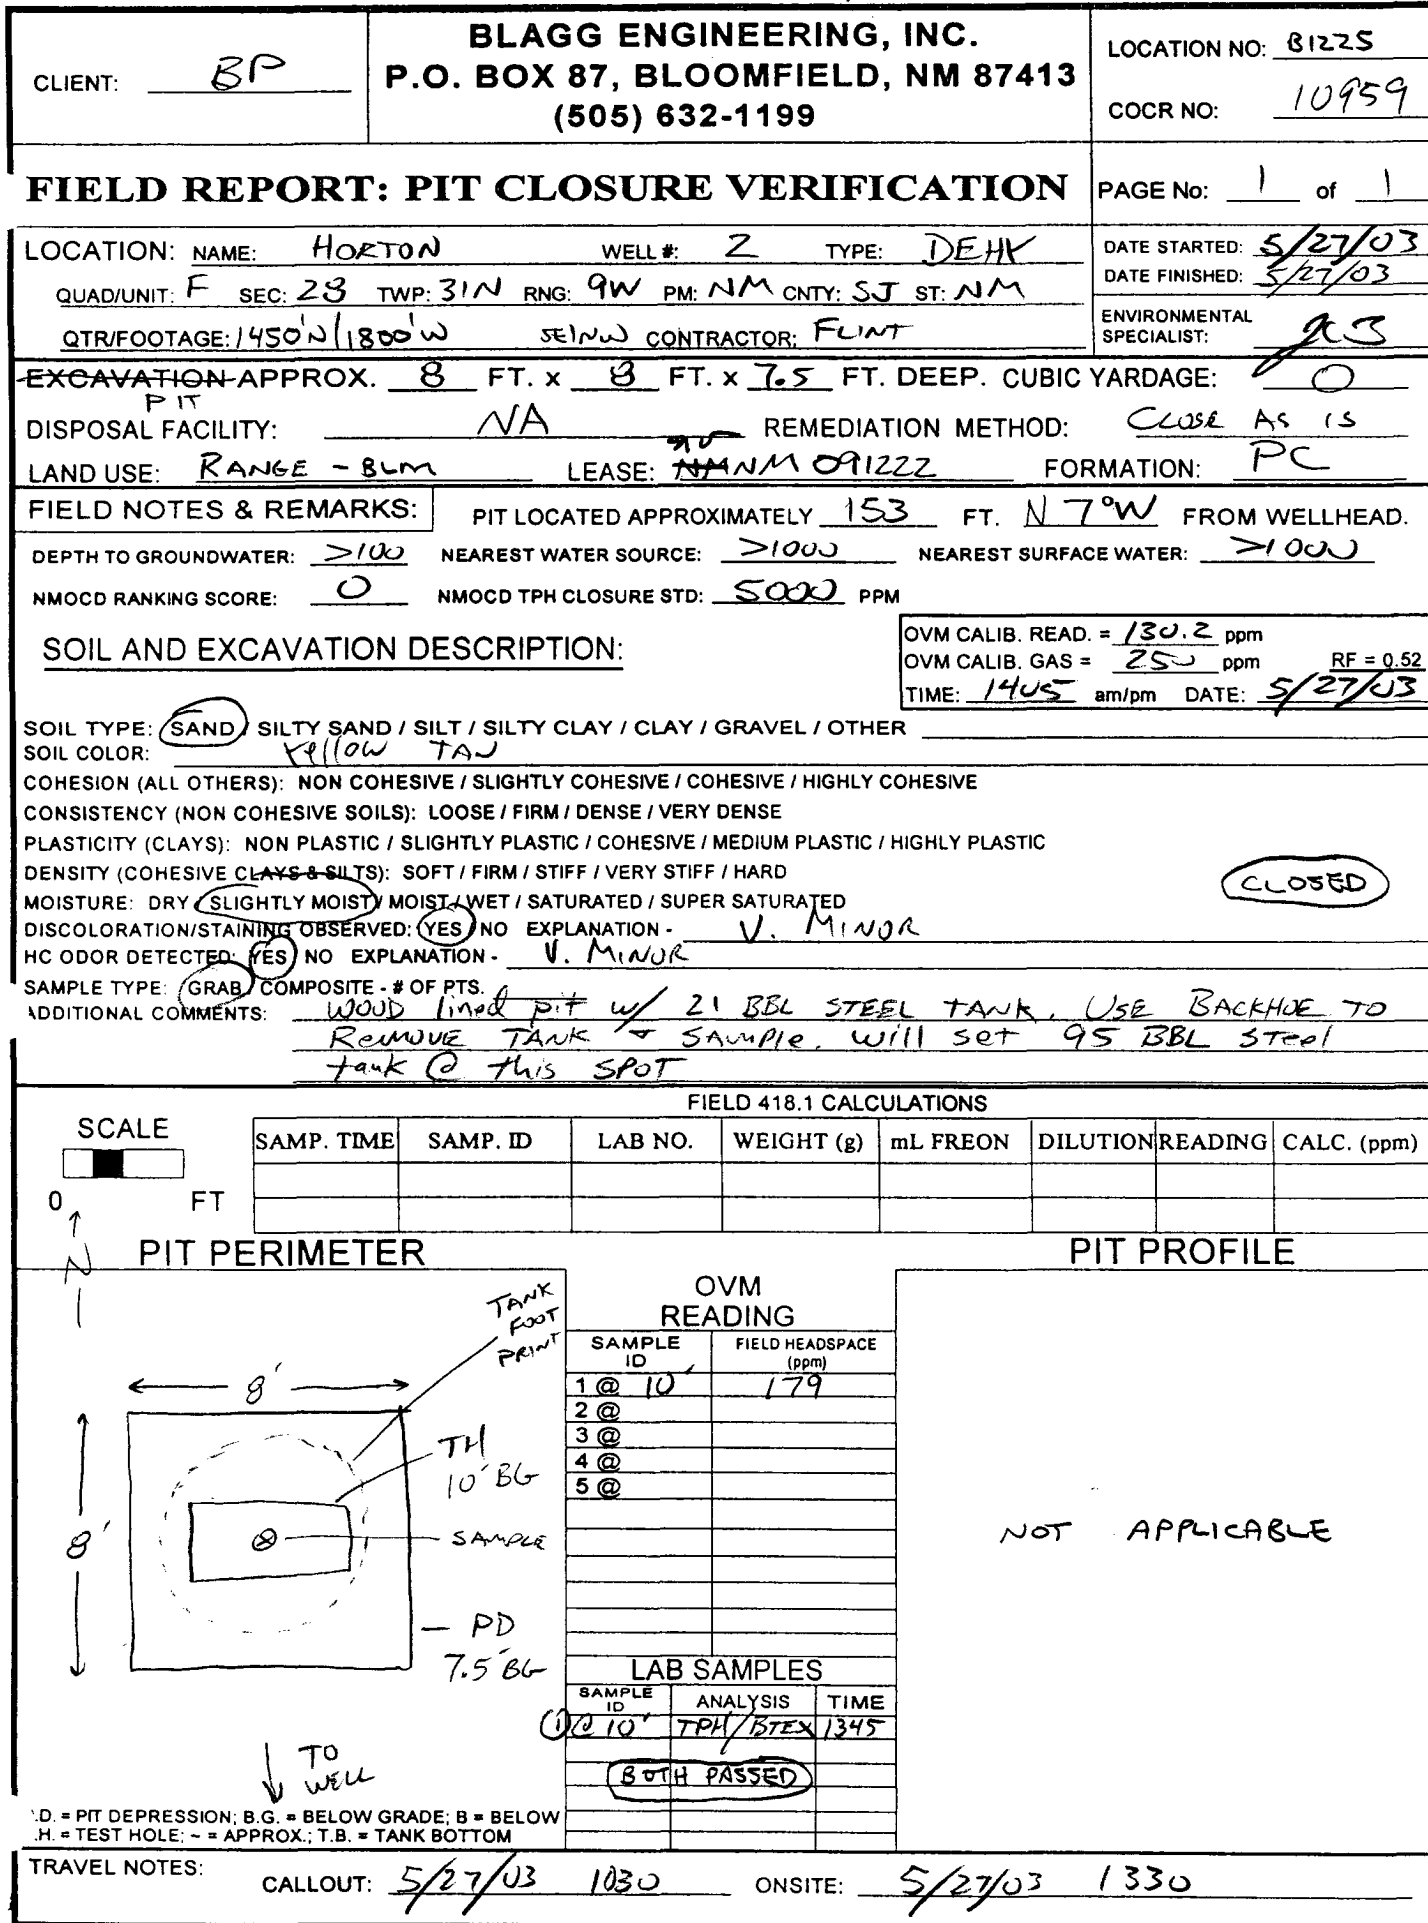 CLIENT: BP
BLAGG ENGINEERING, INC.
P.O. BOX 87, BLOOMFIELD, NM 87413
(505) 632-1199
LOCATION NO: B1225
COCR NO: 10959
FIELD REPORT: PIT CLOSURE VERIFICATION
PAGE No: 1 of 1
LOCATION: NAME: HORTON WELL #: 2 TYPE: DEHY
QUAD/UNIT: F SEC: 28 TWP: 31N RNG: 9W PM: NM CNTY: SJ ST: NM
QTR/FOOTAGE: 1450'N/1800'W SE/NW CONTRACTOR: FLINT
DATE STARTED: 5/27/03
DATE FINISHED: 5/27/03
ENVIRONMENTAL
SPECIALIST:
EXCAVATION APPROX. 8 FT. x 8 FT. x 7.5 FT. DEEP. CUBIC YARDAGE: 0
PIT
DISPOSAL FACILITY: NA REMEDIATION METHOD: CLOSE AS IS
LAND USE: RANGE - BLM LEASE: NM 091222 FORMATION: PC
FIELD NOTES & REMARKS: PIT LOCATED APPROXIMATELY 153 FT. N 7°W FROM WELLHEAD.
DEPTH TO GROUNDWATER: >100 NEAREST WATER SOURCE: >1000 NEAREST SURFACE WATER: >1000
NMOCD RANKING SCORE: 0 NMOCD TPH CLOSURE STD: 5000 PPM
SOIL AND EXCAVATION DESCRIPTION:
OVM CALIB. READ. = 130.2 ppm
OVM CALIB. GAS = 250 ppm RF = 0.52
TIME: 1405 am/pm DATE: 5/27/03
SOIL TYPE: SAND / SILTY SAND / SILT / SILTY CLAY / CLAY / GRAVEL / OTHER
SOIL COLOR: Yellow TAN
COHESION (ALL OTHERS): NON COHESIVE / SLIGHTLY COHESIVE / COHESIVE / HIGHLY COHESIVE
CONSISTENCY (NON COHESIVE SOILS): LOOSE / FIRM / DENSE / VERY DENSE
PLASTICITY (CLAYS): NON PLASTIC / SLIGHTLY PLASTIC / COHESIVE / MEDIUM PLASTIC / HIGHLY PLASTIC
DENSITY (COHESIVE CLAYS & SILTS): SOFT / FIRM / STIFF / VERY STIFF / HARD
MOISTURE: DRY / SLIGHTLY MOIST / MOIST / WET / SATURATED / SUPER SATURATED
CLOSED
DISCOLORATION/STAINING OBSERVED: YES / NO EXPLANATION - V. MINOR
HC ODOR DETECTED: YES / NO EXPLANATION - V. MINOR
SAMPLE TYPE: GRAB / COMPOSITE - # OF PTS.
ADDITIONAL COMMENTS: WOOD lined pit w/ 21 BBL STEEL TANK. USE BACKHOE TO
REMOVE TANK & SAMPLE. will set 95 BBL Steel
tank @ this SPOT
FIELD 418.1 CALCULATIONS
SCALE
0 FT
SAMP. TIME SAMP. ID LAB NO. WEIGHT (g) mL FREON DILUTION READING CALC. (ppm)
N
PIT PERIMETER
PIT PROFILE
TANK
FOOT
PRINT
8'
TH
10' BG
8'
SAMPLE
PD
7.5' BG
TO
WELL
OVM
READING
SAMPLE
ID
FIELD HEADSPACE
(ppm)
1 @ 10' 179
2 @
3 @
4 @
5 @
LAB SAMPLES
SAMPLE
ID
ANALYSIS TIME
① @ 10' TPH/BTEX 1345
BOTH PASSED
NOT APPLICABLE
.D. = PIT DEPRESSION; B.G. = BELOW GRADE; B = BELOW
.H. = TEST HOLE; ~ = APPROX.; T.B. = TANK BOTTOM
TRAVEL NOTES: CALLOUT: 5/27/03 1030 ONSITE: 5/27/03 1330